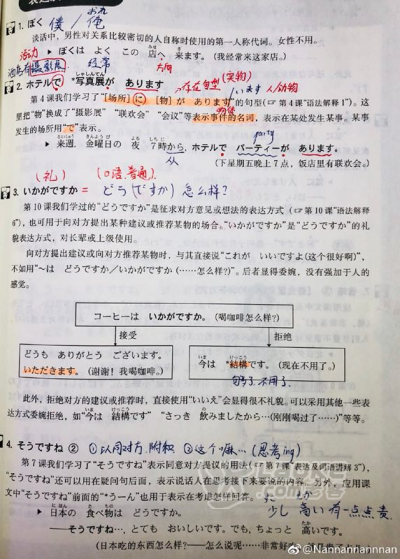 1. ぼく 僕/俺
谈话中，男性对关系比较密切的人自称时使用的第一人称代词。女性不用。
▶ ぼくは よく この 店へ 来ます。（我经常来这家店。）
活动 经常 方向
2. ホテルで 写真展が あります
第4课我们学习了"[场所]に [物]が あります"的句型（☞第4课"语法解释1"）。这
里把"物"换成了"摄影展" "联欢会" "会议"等表示事件的名词，表示在某处发生某事。某事
发生的场所用"で"表示。
▶ 来週、金曜日の 夜 7時から、ホテルで パーティーが あります。
从 （下星期五晚上7点，饭店里有联欢会。）
（礼） （口语,普通）
3. いかがですか = どう（ですか）怎么样？
第10课我们学过的"どうですか"是征求对方意见或想法的表达方式（☞第10课"语法解释
6"），也可用于向对方提出某种建议或推荐某物的场合。"いかがですか"是"どうですか"的礼
貌表达方式，对长辈或上级使用。
向对方提出建议或向对方推荐某物时，与其直接说"これが いいですよ（这个很好啊）"，
不如用"～は どうですか/いかがですか（……怎么样？）"。后者显得委婉，没有强加于人的
感觉。
コーヒーは いかがですか。（喝咖啡怎么样？）
接受 拒绝
どうも ありがとう ございます。
いただきます。（谢谢！我喝咖啡。）
今は 結構です。（现在不用了。）
够了,不用了.
此外，拒绝对方的建议或推荐时，直接使用"いいえ"会显得很不礼貌。可以采用其他一些表
达方式委婉拒绝，如"今は 結構です" "さっき 飲みましたから…（刚刚喝过了……）"等等。
4. そうですね ② ①认同对方,附和 ②这个嘛…（思考ing）
第7课我们学习了"そうですね"表示同意对方建议的用法
"そうですね"还可以用在疑问句后面，表示说话人在思考接下来要说的内容。另外，应用课
文中"そうですね"前面的"うーん"也用于表示在考虑怎样回答。
▶ 日本の 食べ物は どうですか。
そうですね…、とても おいしいです。でも、ちょっと 高いです。
（日本吃的东西怎么样？——怎么说呢……
@Nannannannnan